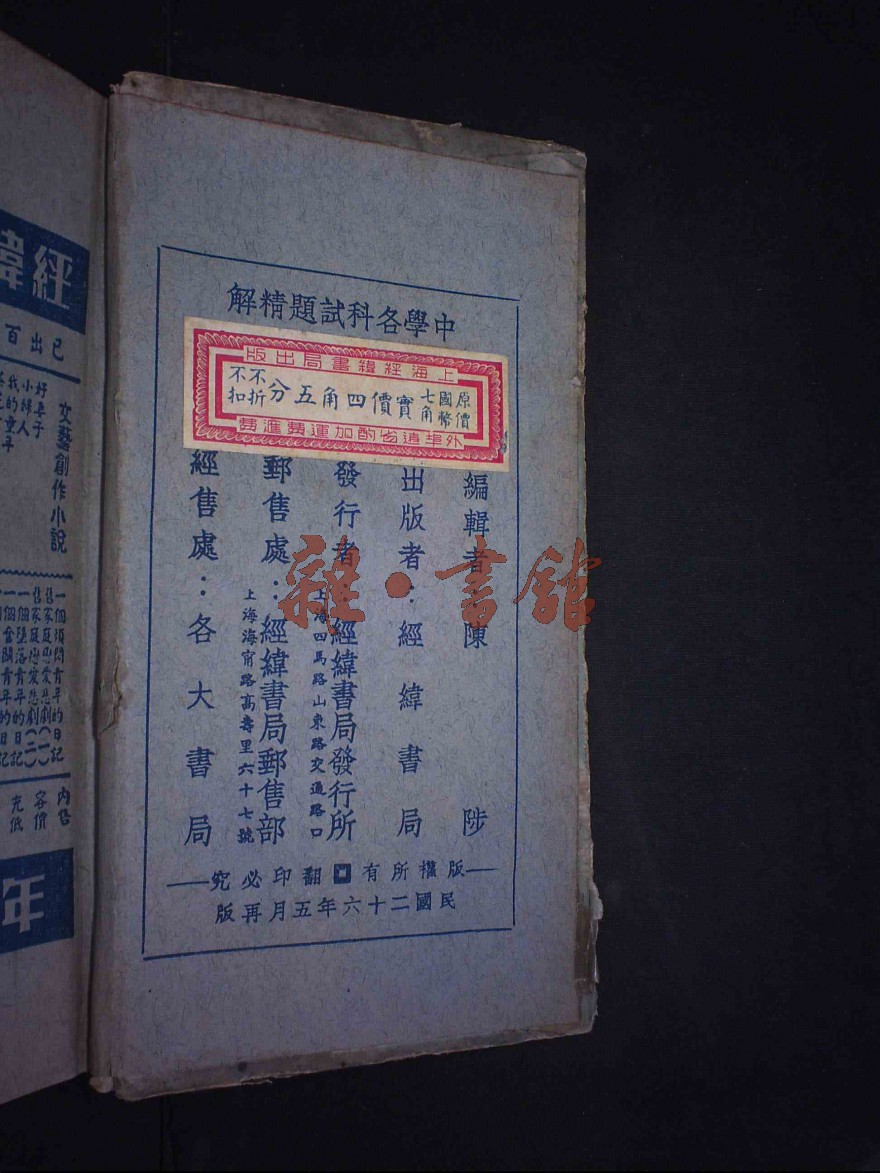 中學各科試題精解
上海經緯書局出版
原價
國幣
七角
實價四角五分
不折
不扣
外埠遠省酌加運費滙費
編輯者：陳 陟
出版者：經緯書局
發行者：經緯書局發行所
上海四馬路山東路交通路口
郵售處：經緯書局郵售部
上海海甯路高壽里六十七號
經售處：各大書局
版權所有 翻印必究
民國二十六年五月再版
經緯
已出百
文藝創作小說
好妻子
小婦人
我的童年
一個煩悶青年的日記
舊家庭戀愛悲劇(一)
舊家庭戀愛悲劇(二)
一個墮落青年的日記
年
雜·書館